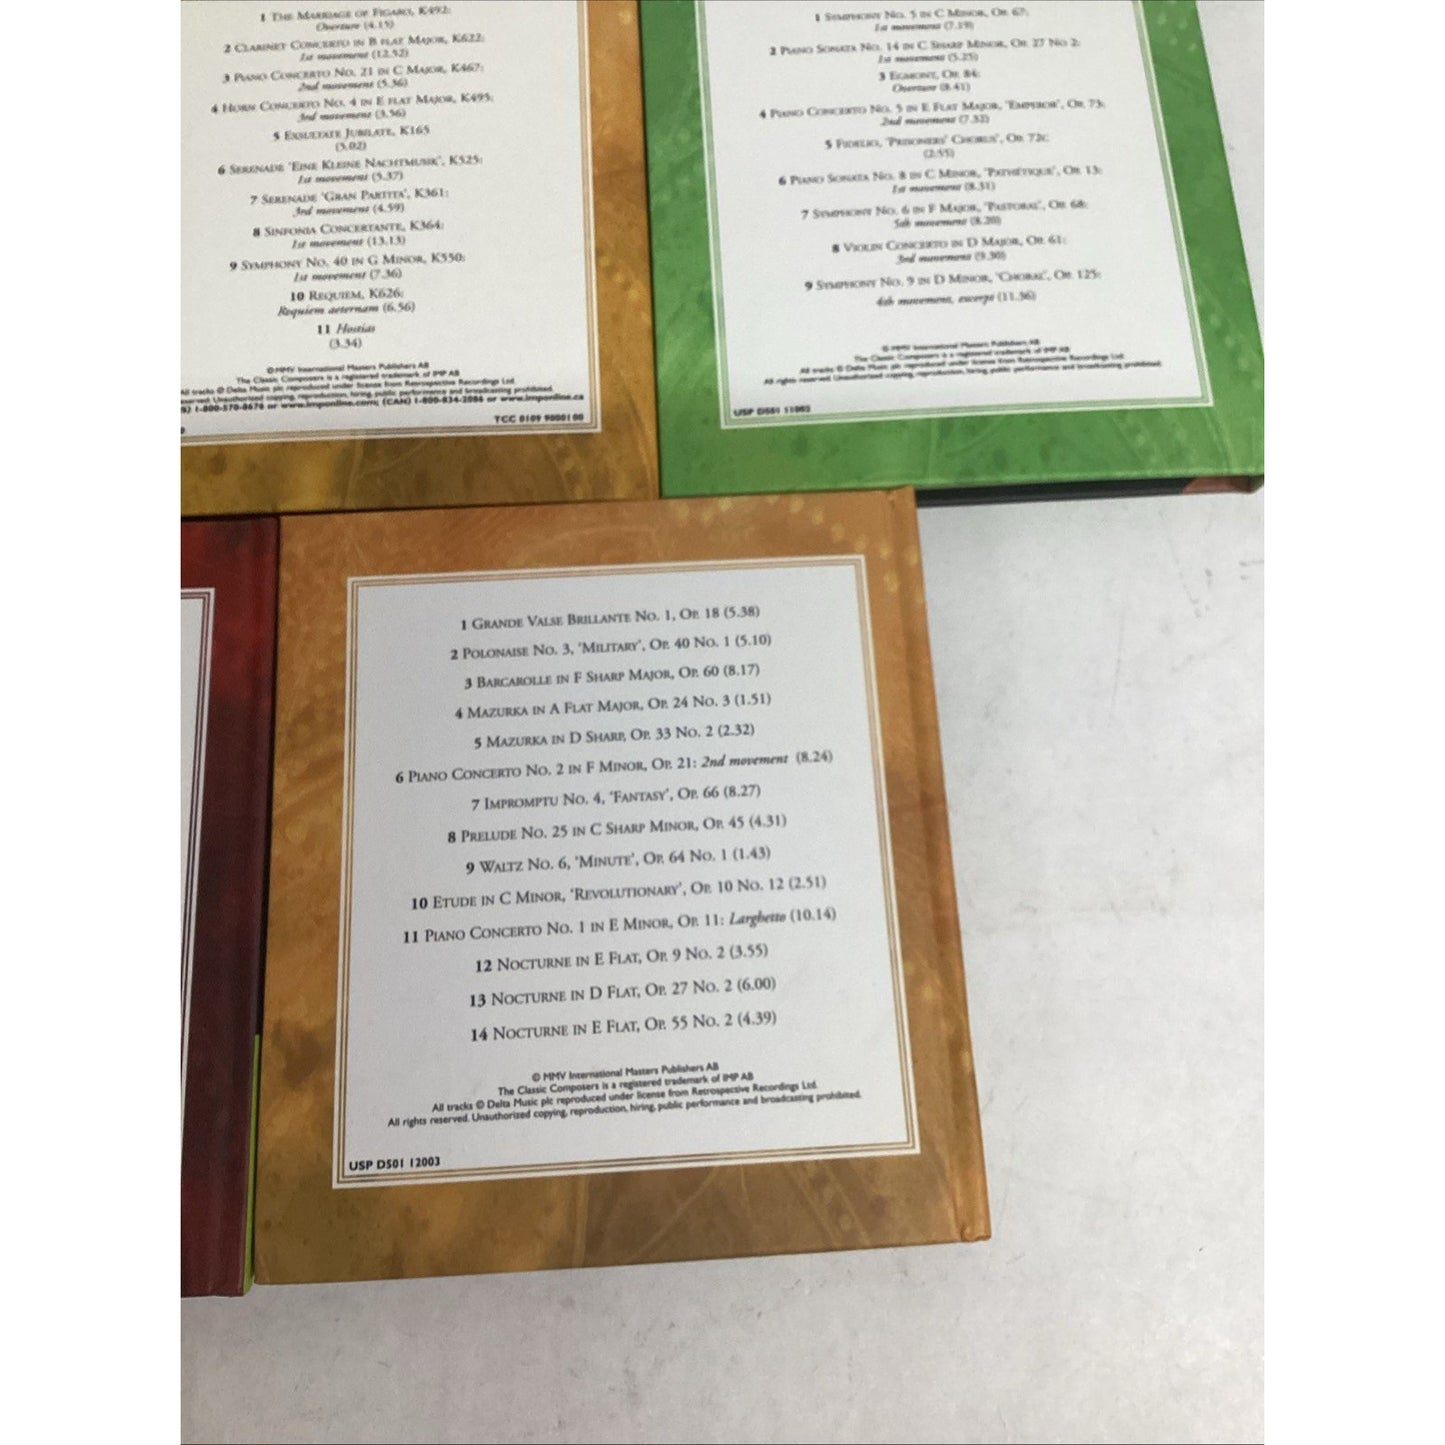 1 The Marriage of Figaro, K492:
Overture (4.15)
2 Clarinet Concerto in B flat Major, K622:
1st movement (12.52)
3 Piano Concerto No. 21 in C Major, K467:
2nd movement (5.36)
4 Horn Concerto No. 4 in E flat Major, K495:
3rd movement (3.56)
5 Exsultate Jubilate, K165
(5.02)
6 Serenade 'Eine Kleine Nachtmusik', K525:
1st movement (5.37)
7 Serenade 'Gran Partita', K361:
3rd movement (4.59)
8 Sinfonia Concertante, K364:
1st movement (13.13)
9 Symphony No. 40 in G Minor, K550:
1st movement (7.36)
10 Requiem, K626:
Requiem aeternam (6.56)
11 Hostias
(3.34)
© MMV International Masters Publishers AB
The Classic Composers is a registered trademark of IMP AB
All tracks © Delta Music plc reproduced under license from Retrospective Recordings Ltd.
Unauthorized copying, reproduction, hiring, public performance and broadcasting prohibited.
1-800-570-8676 or www.imponline.com; (CAN) 1-800-834-2086 or www.imponline.ca
TCC 0109 9000100
1 Symphony No. 5 in C Minor, Op. 67:
1st movement (7.19)
2 Piano Sonata No. 14 in C Sharp Minor, Op. 27 No 2:
1st movement (5.25)
3 Egmont, Op. 84:
Overture (8.41)
4 Piano Concerto No. 5 in E Flat Major, 'Emperor', Op. 73:
2nd movement (7.32)
5 Fidelio, 'Prisoners' Chorus', Op. 72c
(2.55)
6 Piano Sonata No. 8 in C Minor, 'Pathétique', Op. 13:
1st movement (8.31)
7 Symphony No. 6 in F Major, 'Pastoral', Op. 68:
5th movement (8.20)
8 Violin Concerto in D Major, Op. 61:
3rd movement (9.30)
9 Symphony No. 9 in D Minor, 'Choral', Op. 125:
4th movement, excerpt (11.36)
© MMV International Masters Publishers AB
The Classic Composers is a registered trademark of IMP AB
All tracks © Delta Music plc reproduced under license from Retrospective Recordings Ltd.
All rights reserved. Unauthorized copying, reproduction, hiring, public performance and broadcasting prohibited.
USP D501 11002
1 Grande Valse Brillante No. 1, Op. 18 (5.38)
2 Polonaise No. 3, 'Military', Op. 40 No. 1 (5.10)
3 Barcarolle in F Sharp Major, Op. 60 (8.17)
4 Mazurka in A Flat Major, Op. 24 No. 3 (1.51)
5 Mazurka in D Sharp, Op. 33 No. 2 (2.32)
6 Piano Concerto No. 2 in F Minor, Op. 21: 2nd movement (8.24)
7 Impromptu No. 4, 'Fantasy', Op. 66 (8.27)
8 Prelude No. 25 in C Sharp Minor, Op. 45 (4.31)
9 Waltz No. 6, 'Minute', Op. 64 No. 1 (1.43)
10 Etude in C Minor, 'Revolutionary', Op. 10 No. 12 (2.51)
11 Piano Concerto No. 1 in E Minor, Op. 11: Larghetto (10.14)
12 Nocturne in E Flat, Op. 9 No. 2 (3.55)
13 Nocturne in D Flat, Op. 27 No. 2 (6.00)
14 Nocturne in E Flat, Op. 55 No. 2 (4.39)
© MMV International Masters Publishers AB
The Classic Composers is a registered trademark of IMP AB
All tracks © Delta Music plc reproduced under license from Retrospective Recordings Ltd.
All rights reserved. Unauthorized copying, reproduction, hiring, public performance and broadcasting prohibited.
USP D501 12003